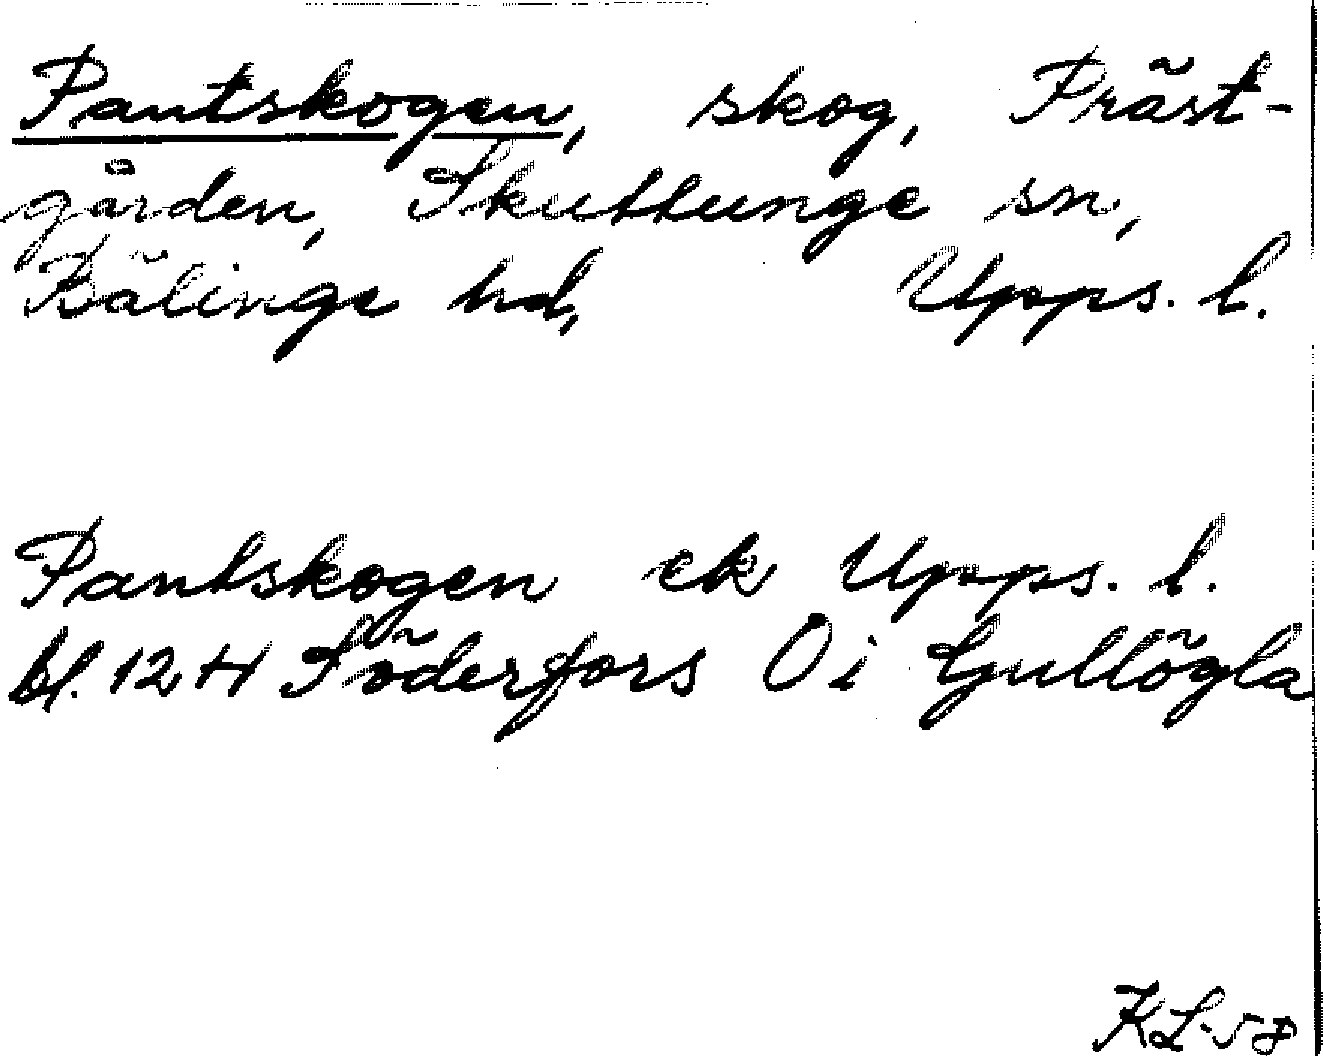 Pantskogen, skog, Präst-
gården, Skuttunge sn,
Bälinge hd, Upps. l.
Pantskogen ek Upps. l.
bl. 12 H Söderfors Ö i Gullögla
KL-58